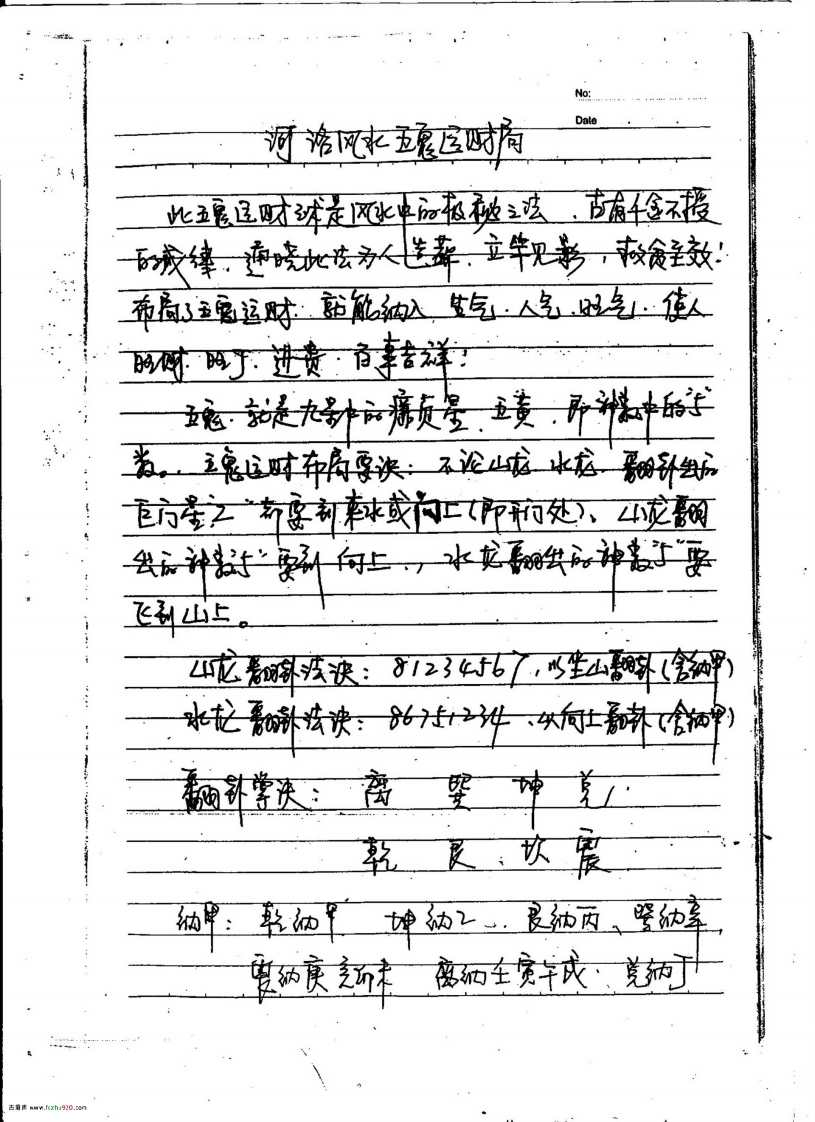 No:
Date
河洛风水五鬼运财局
此五鬼运财球是风水中的极秘之法、古有千金不授
的戒律、通晓此法为人造葬、立竿见影，救贫至效！
布局了五鬼运财、就能纳入生气、人气、旺气、使人
旺财、旺丁、进贵、百事吉祥！
五鬼、就是九星中的廉贞星、五黄、即神数中的"5"
数。五鬼运财布局要诀：不论山龙、水龙、翻卦出的
巨门星"2"都要到来水或向上(即开门处)、山龙翻
出的神数"5"要到向上、水龙翻出的神数"5"要
飞到山上。
山龙翻卦法诀：81234567，以坐山翻卦(含纳甲)
水龙翻卦法诀：86751234、以向上翻卦(含纳甲)
翻卦掌诀：离 巽 坤 兑
乾 艮 坎 震
纳甲：乾纳甲 坤纳乙、艮纳丙、巽纳辛，
震纳庚亥卯未 离纳壬寅午戌、兑纳丁
www.fozhu920.com